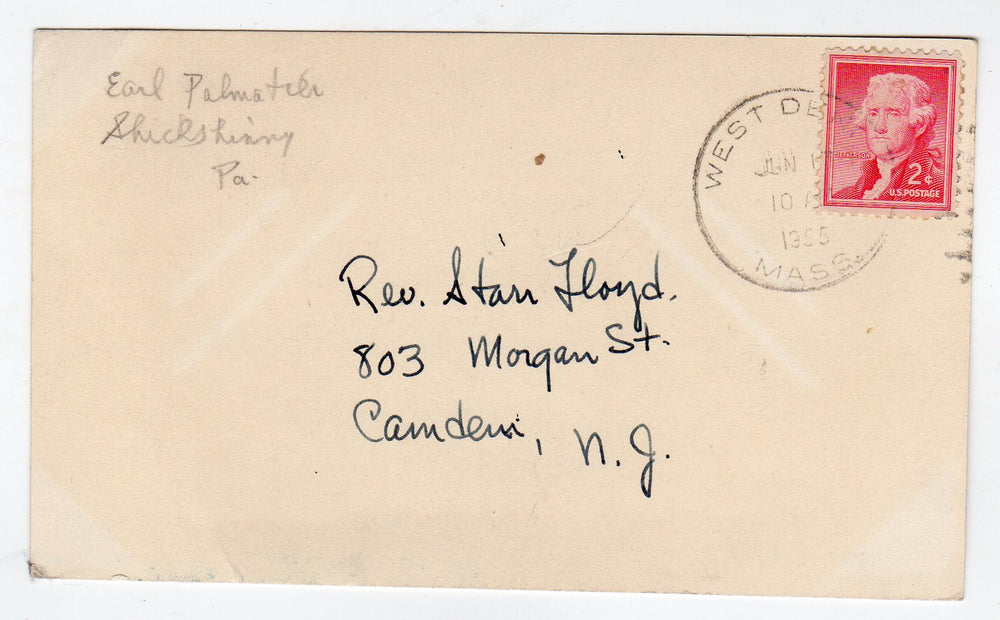 Earl Palmatier
Shickshinny
Pa.
WEST DE
JUN 1
10 A
1955
MASS.
JEFFERSON
2¢
U.S. POSTAGE
Rev. Starr Floyd.
803 Morgan St.
Camden, N. J.